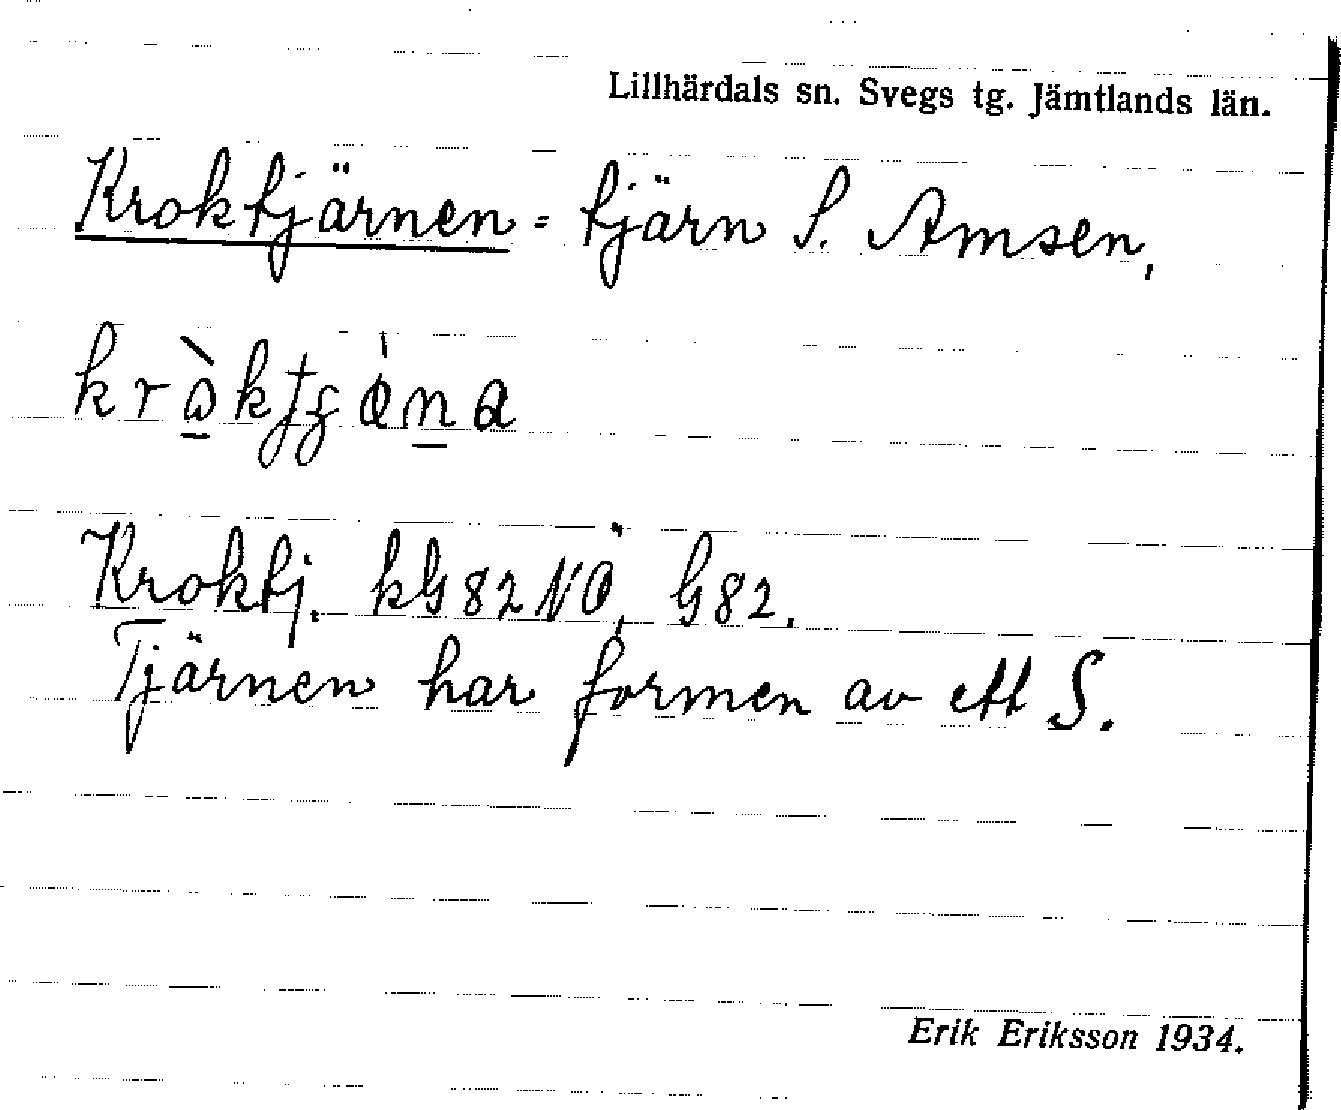 Lillhärdals sn. Svegs tg. Jämtlands län.
Kroktjärnen = tjärn S. Amsen,
Kroktj. kG82NÖ, G82.
Tjärnen har formen av ett S.
Erik Eriksson 1934.